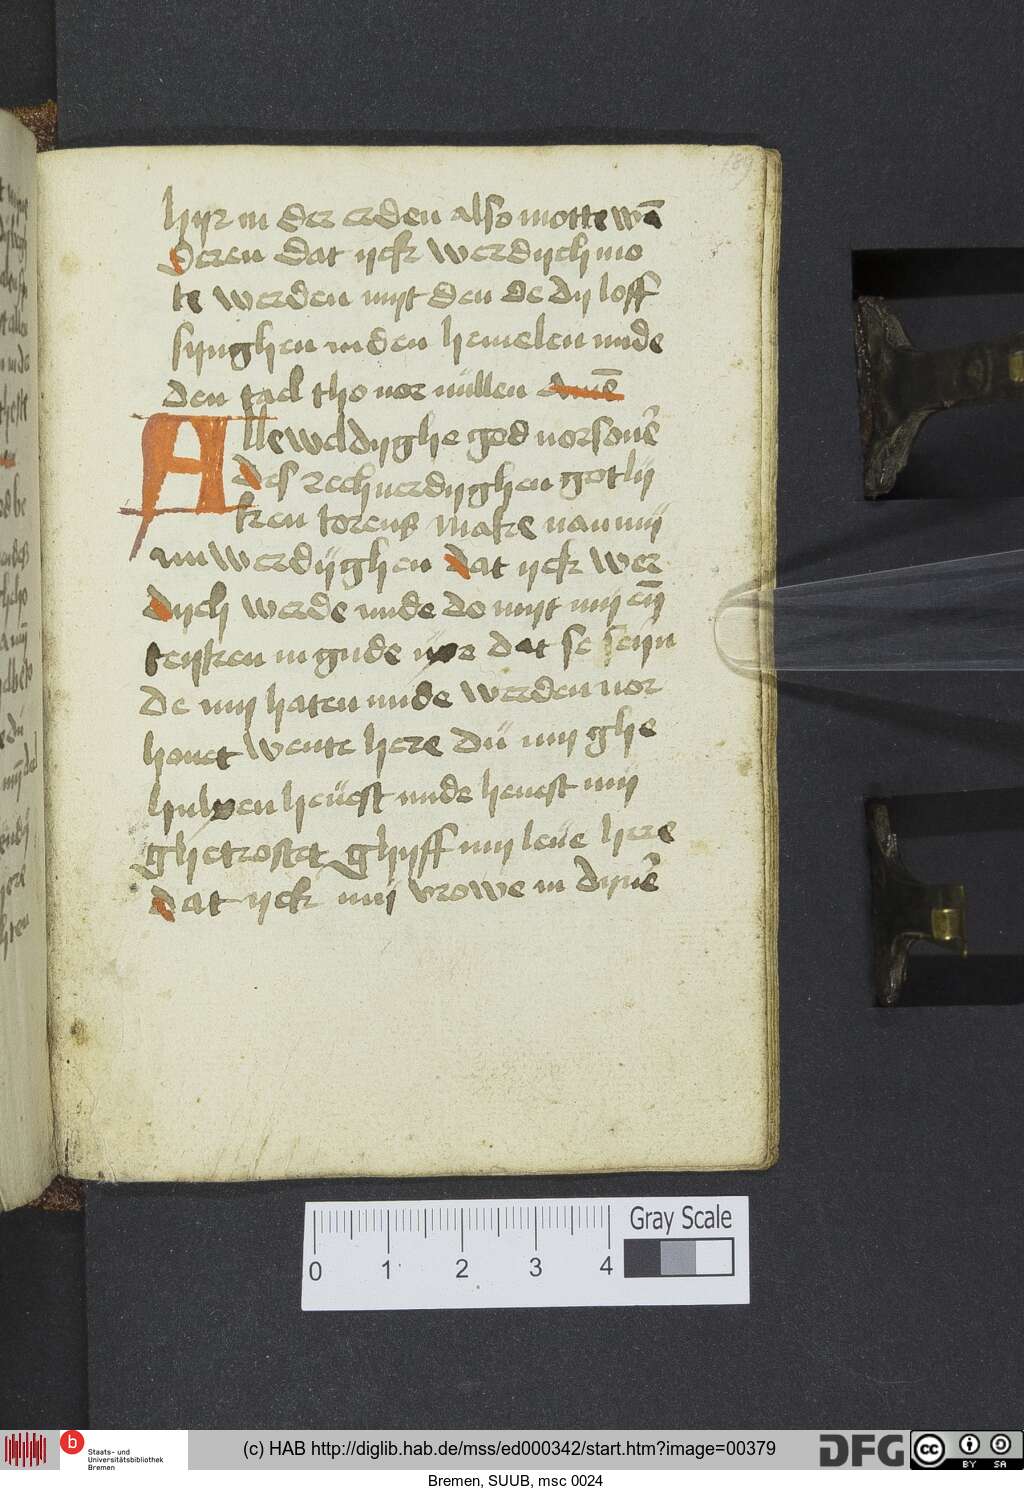 189
hyr in der erden also motte wā
deren dat yck werdych mo
te werden myt den de dy loff
synghen in den hemelen unde
den tael tho vor vüllen Amē
Alleweldyghe god vorsonē
des rechverdyghen gotly
ken torens make van my
unwerdÿghen dat yck wer
dych werde unde do myt my eyn
teyken in gude dat se seÿn
De my haten unde werden vor
hovet wente here Dü my ghe
hulpen heüest unde hevest my
ghetrostet ghyff my leüe here
dat yck my vrowe in dynē
0 1 2 3 4
Gray Scale
b
Staats- und
Universitätsbibliothek
Bremen
(c) HAB http://diglib.hab.de/mss/ed000342/start.htm?image=00379
DFG
cc BY SA
Bremen, SUUB, msc 0024